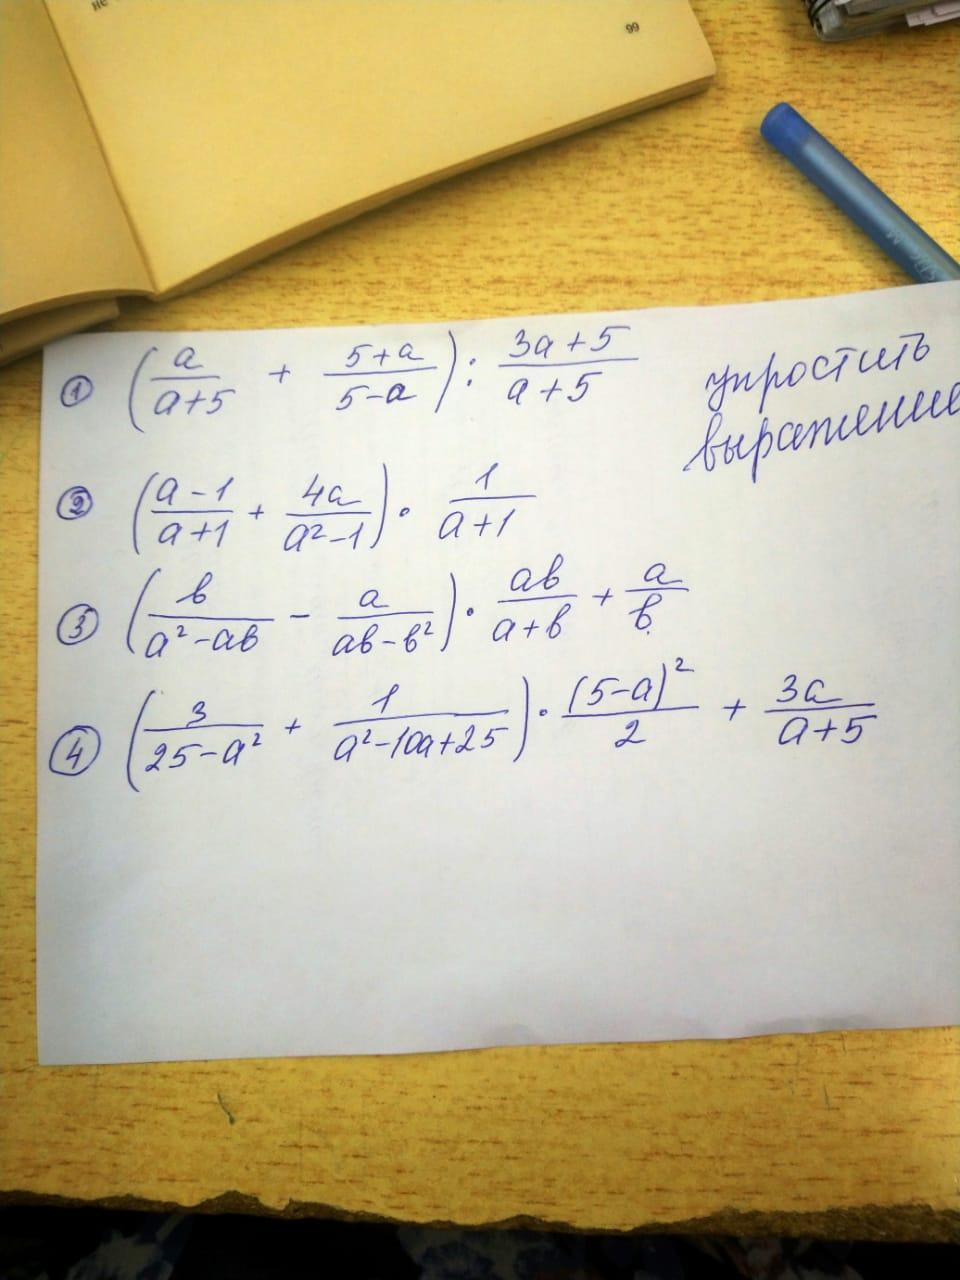 не
99
① (a/(a+5) + (5+a)/(5-a)) : (3a+5)/(a+5)
упростить
выражение
② ((a-1)/(a+1) + 4a/(a²-1)) · 1/(a+1)
③ (в/(a²-aв) - a/(aв-в²)) · aв/(a+в) + a/в
④ (3/(25-a²) + 1/(a²-10a+25)) · (5-a)²/2 + 3a/(a+5)